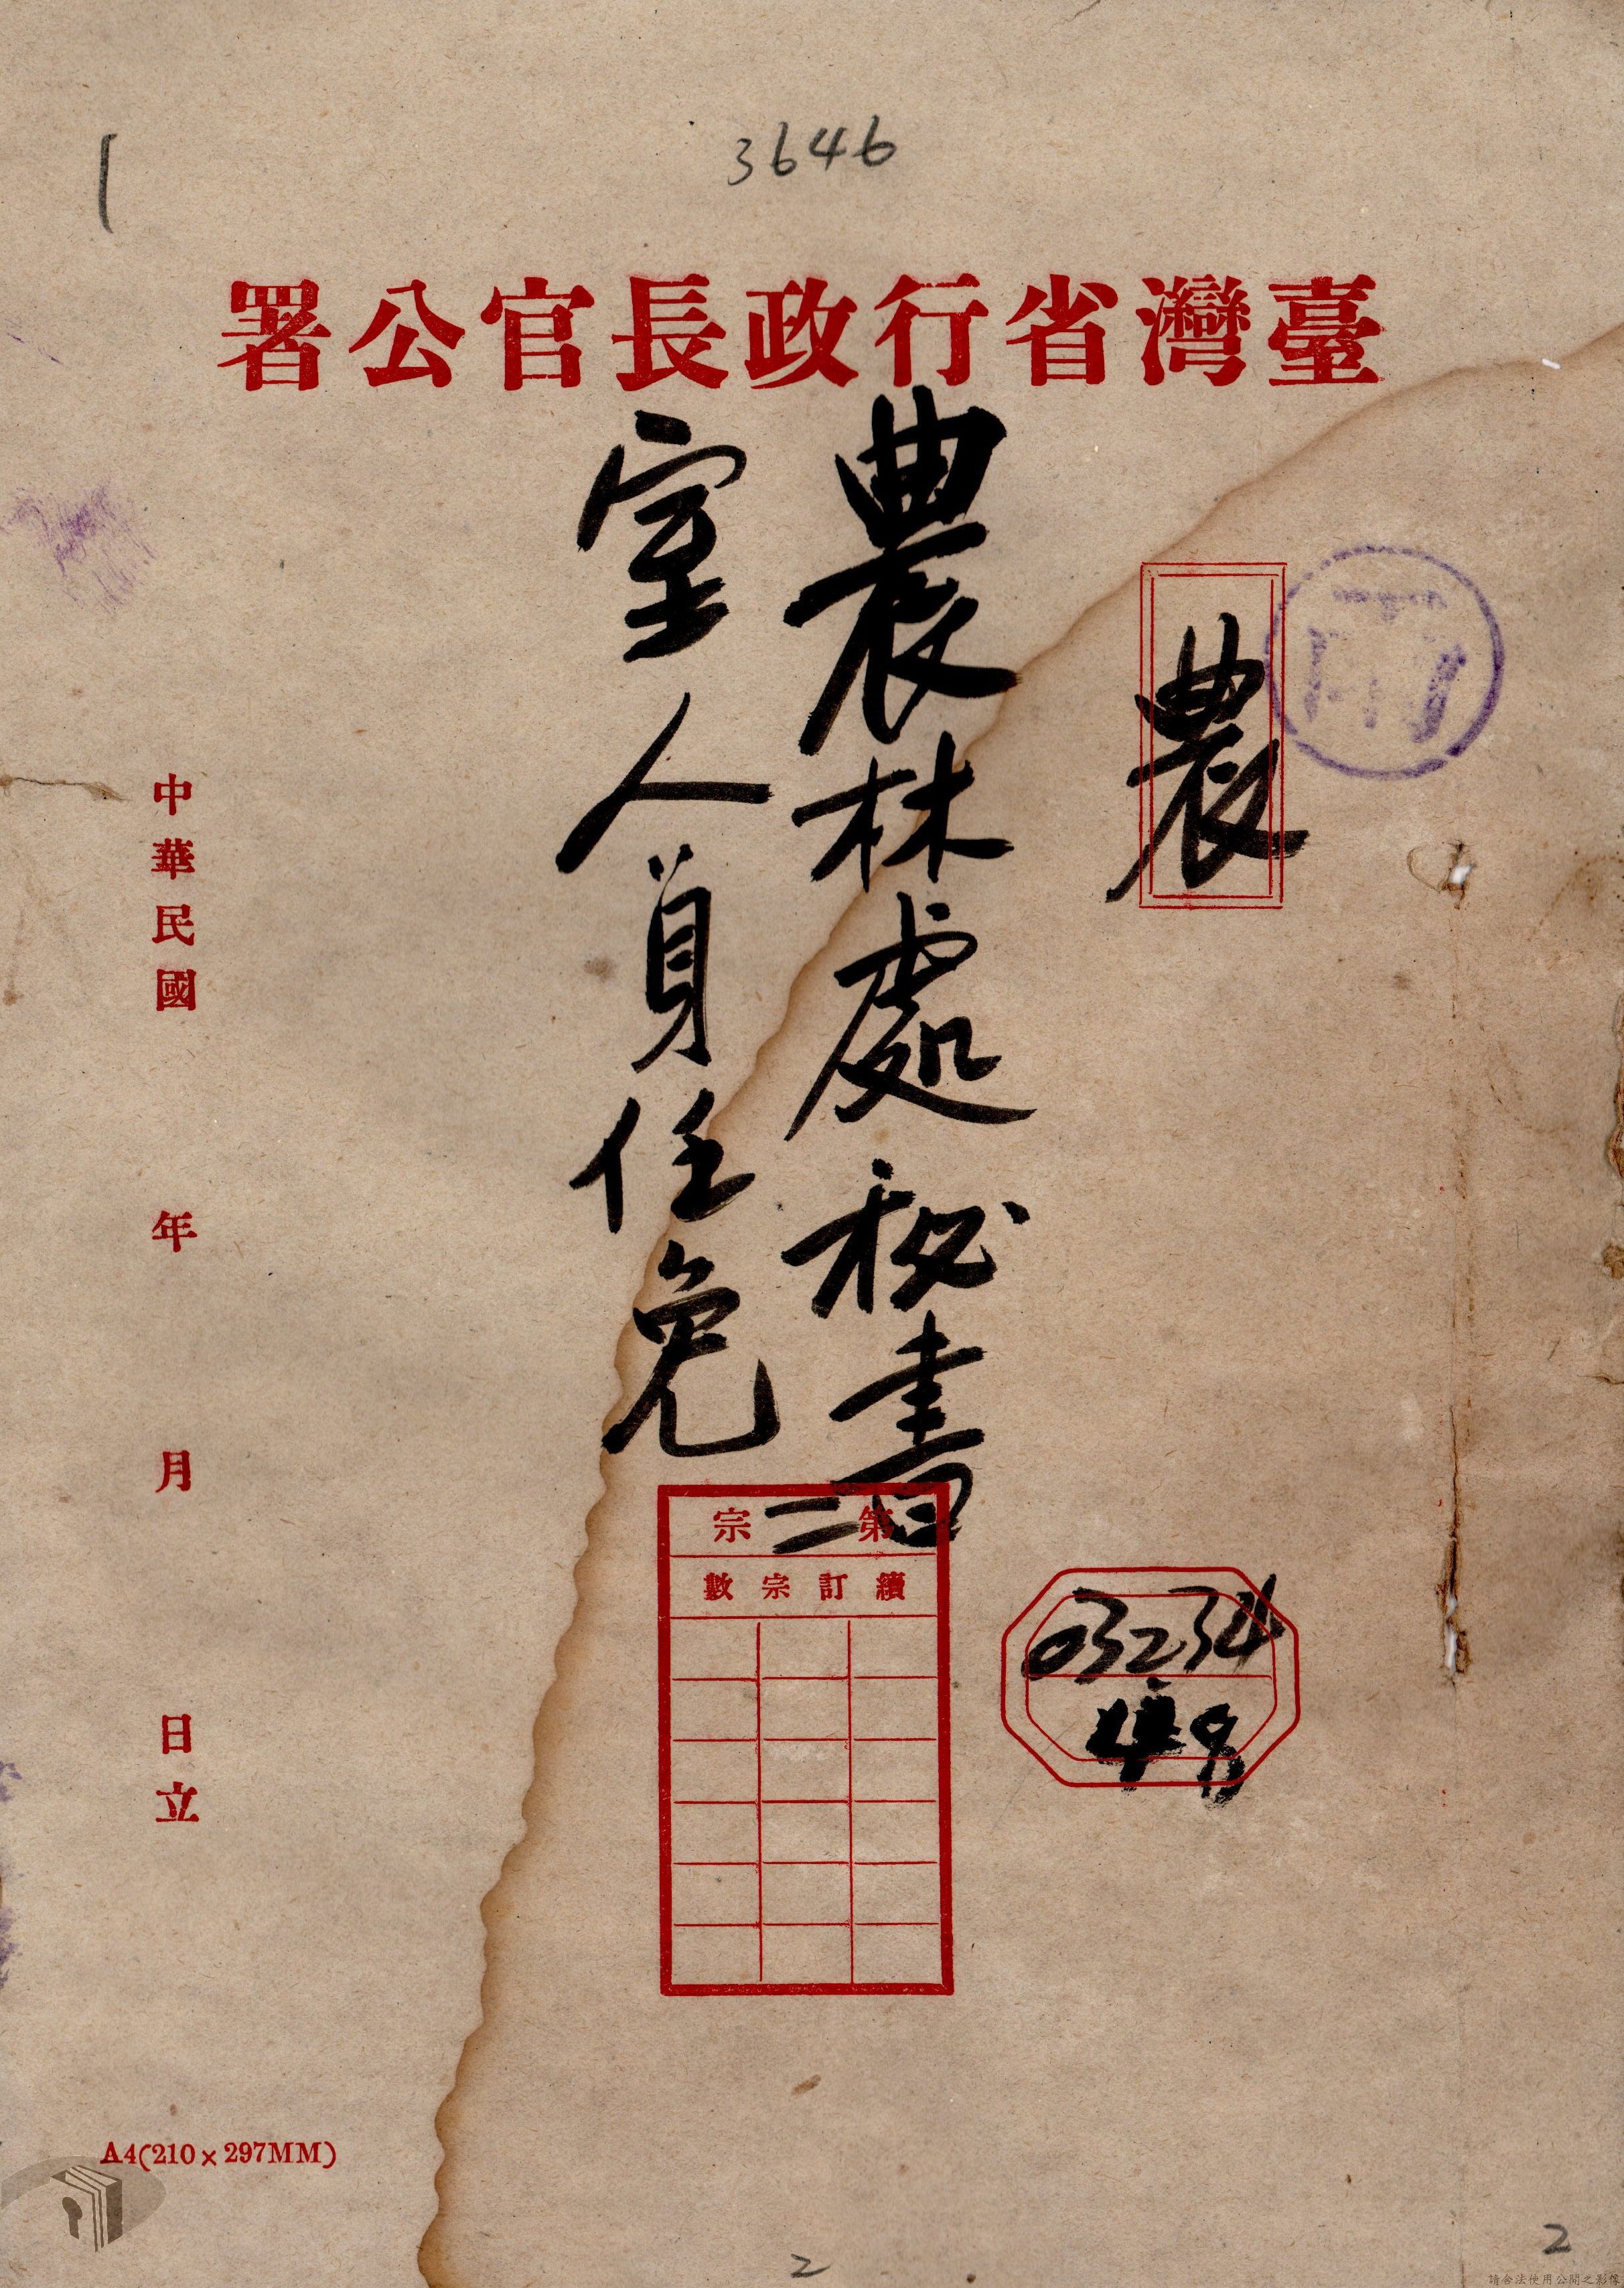 3646
臺灣省行政長官公署
農
農林處秘書
室人員任免
第二宗
續訂宗數
03234
中華民國 年 月 日立
A4(210×297MM)
2
2
請合法使用公開之影像